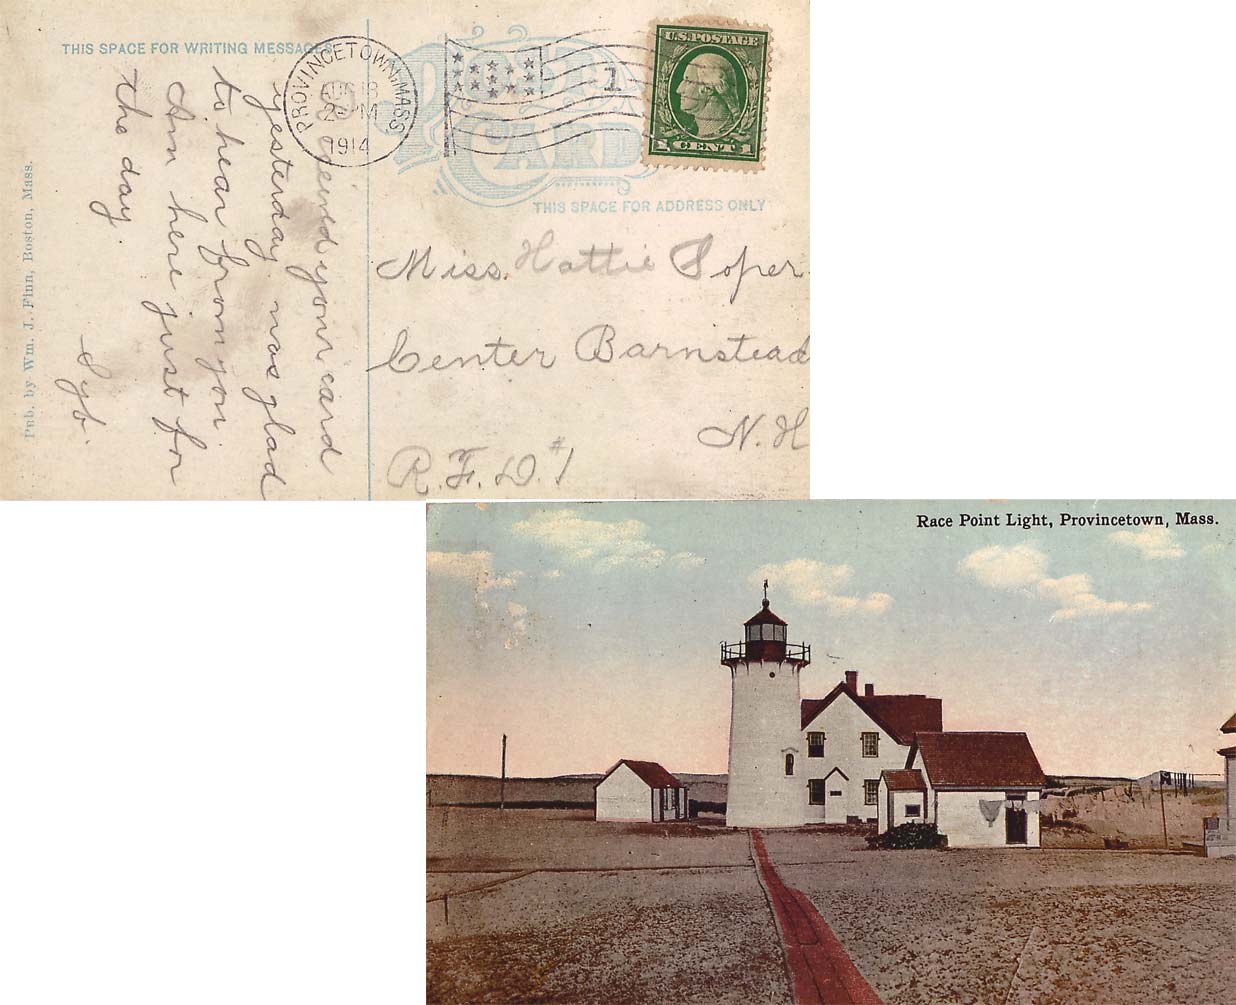 THIS SPACE FOR WRITING MESSAGES
PROVINCETOWN, MASS.
AUG 18
2 PM
1914
1
U.S. POSTAGE
1 CENT 1
POST
CARD
THIS SPACE FOR ADDRESS ONLY
your card
yesterday was glad
to hear from you.
Am here just for
the day.
Syb.
Miss. Hattie Soper.
Center Barnstead
N. H
R. F. D. #1
Pub. by Wm. J. Finn, Boston, Mass.
Race Point Light, Provincetown, Mass.